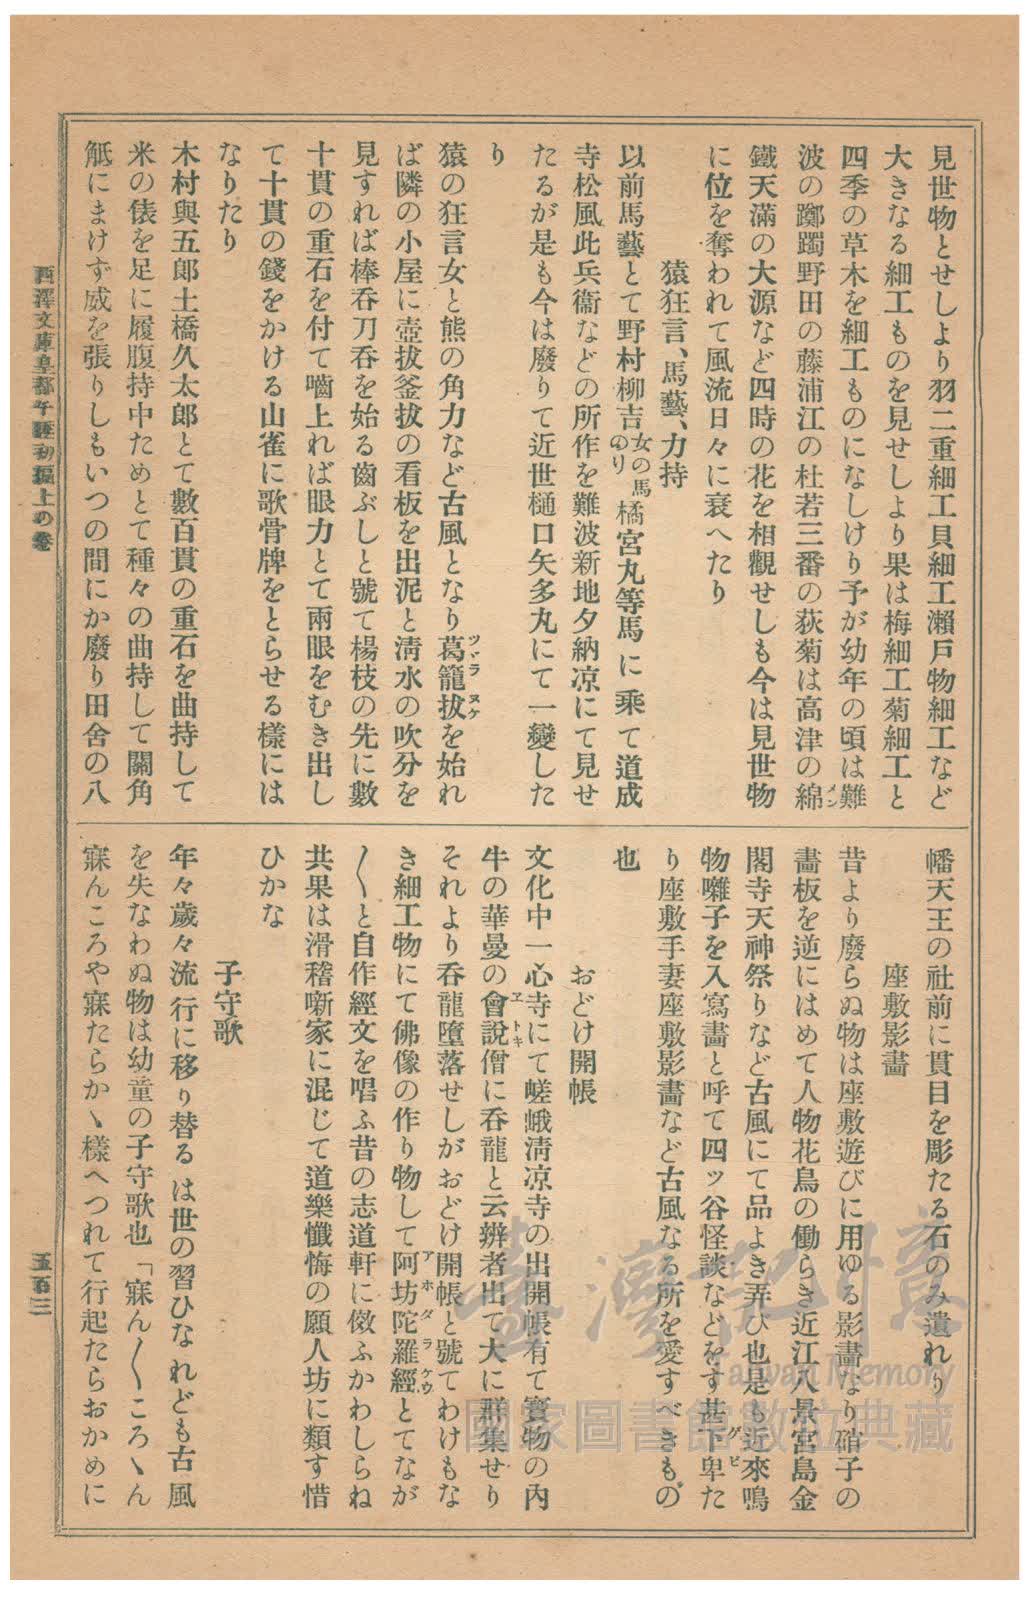 見世物とせしより羽二重細工貝細工瀬戸物細工など
大きなる細工ものを見せしより果は梅細工菊細工と
四季の草木を細工ものになしけり予が幼年の頃は難
波の躑躅野田の藤浦江の杜若三番の荻菊は高津の綿メン
鐵天滿の大源など四時の花を相觀せしも今は見世物
に位を奪われて風流日々に衰へたり
猿狂言、馬藝、力持
以前馬藝とて野村柳吉女の馬のり橘宮丸等馬に乘て道成
寺松風此兵衞などの所作を難波新地夕納凉にて見せ
たるが是も今は廢りて近世樋口矢多丸にて一變した
り
猿の狂言女と熊の角力など古風となり葛籠拔ツヾラヌケを始れ
ば隣の小屋に壺拔釜拔の看板を出泥と淸水の吹分を
見すれば棒呑刀呑を始る齒ぶしと號て楊枝の先に數
十貫の重石を付て嚙上れば眼力とて兩眼をむき出し
て十貫の錢をかける山雀に歌骨牌をとらせる樣には
なりたり
木村與五郞土橋久太郞とて數百貫の重石を曲持して
米の俵を足に履腹持中ためとて種々の曲持して關角
觝にまけず威を張りしもいつの間にか廢り田舍の八
幡天王の社前に貫目を彫たる石のみ遺れり
座敷影畫
昔より廢らぬ物は座敷遊びに用ゆる影畫なり硝子の
畵板を逆にはめて人物花鳥の働らき近江八景宮島金
閣寺天神祭りなど古風にて品よき弄び也是も近來鳴
物囃子を入寫畵と呼て四ッ谷怪談などをす甚下卑グビた
り座敷手妻座敷影畫など古風なる所を愛すべきもの
也
おどけ開帳
文化中一心寺にて嵯峨淸凉寺の出開帳有て寳物の內
牛の華曼の會說ヱトキ僧に呑龍と云辨者出て大に群集せり
それより呑龍墮落せしがおどけ開帳と號てわけもな
き細工物にて佛像の作り物して阿坊陀羅經アホダラケウとてなが
〱と自作經文を唱ふ昔の志道軒に傚ふかわしらね
共果は滑稽噺家に混じて道樂懺悔の願人坊に類す惜
ひかな
子守歌
年々歲々流行に移り替るは世の習ひなれども古風
を失なわぬ物は幼童の子守歌也「寐ん〱ころヽん
寐んころや寐たらかヽ樣へつれて行起たらおかめに
西澤文庫皇都午睡初編上の卷
五百三
臺灣記憶
Taiwan Memory
國家圖書館數位典藏